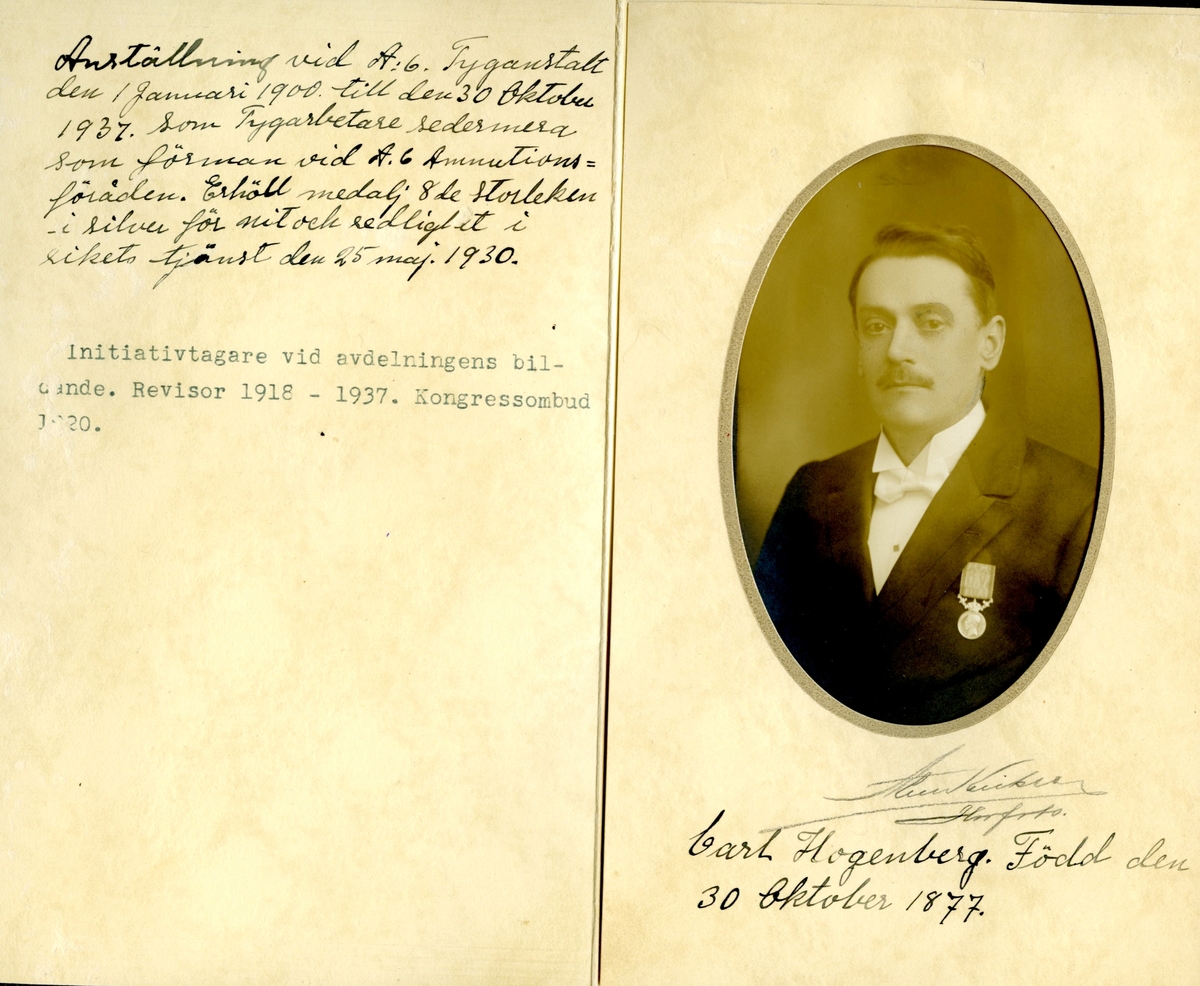 Anställning vid A:6. Tyganstalt
den 1 Januari 1900. till den 30 Oktober
1937. som Tygarbetare sedermera
som förman vid A.6 Ammutions=
föråden. Erhöll medalj 8de storleken
i silver för nit och redlighet i
rikets tjänst den 25 maj. 1930.
Initiativtagare vid avdelningens bil-
dande. Revisor 1918 - 1937. Kongressombud
1920.
Hovfoto.
Carl Hogenberg. Född den
30 Oktober 1877.